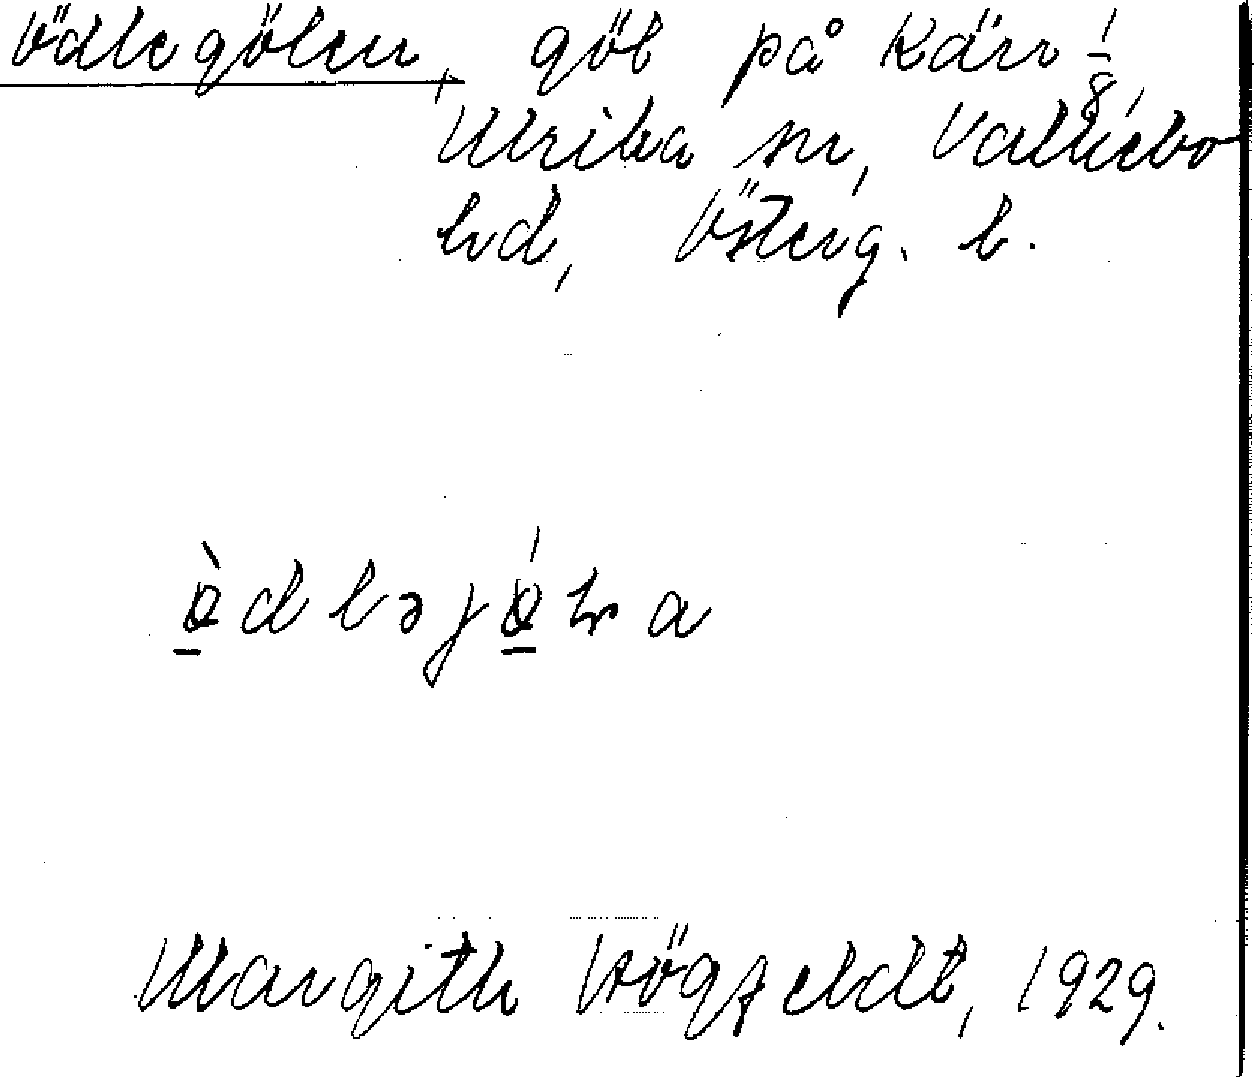 Ödlegölen, göl på Kärr 1/8
Ulrika sn, Vallkebo
hd, Österg. l.
ø̀dləjǿla
Margith Högfeldt, 1929.